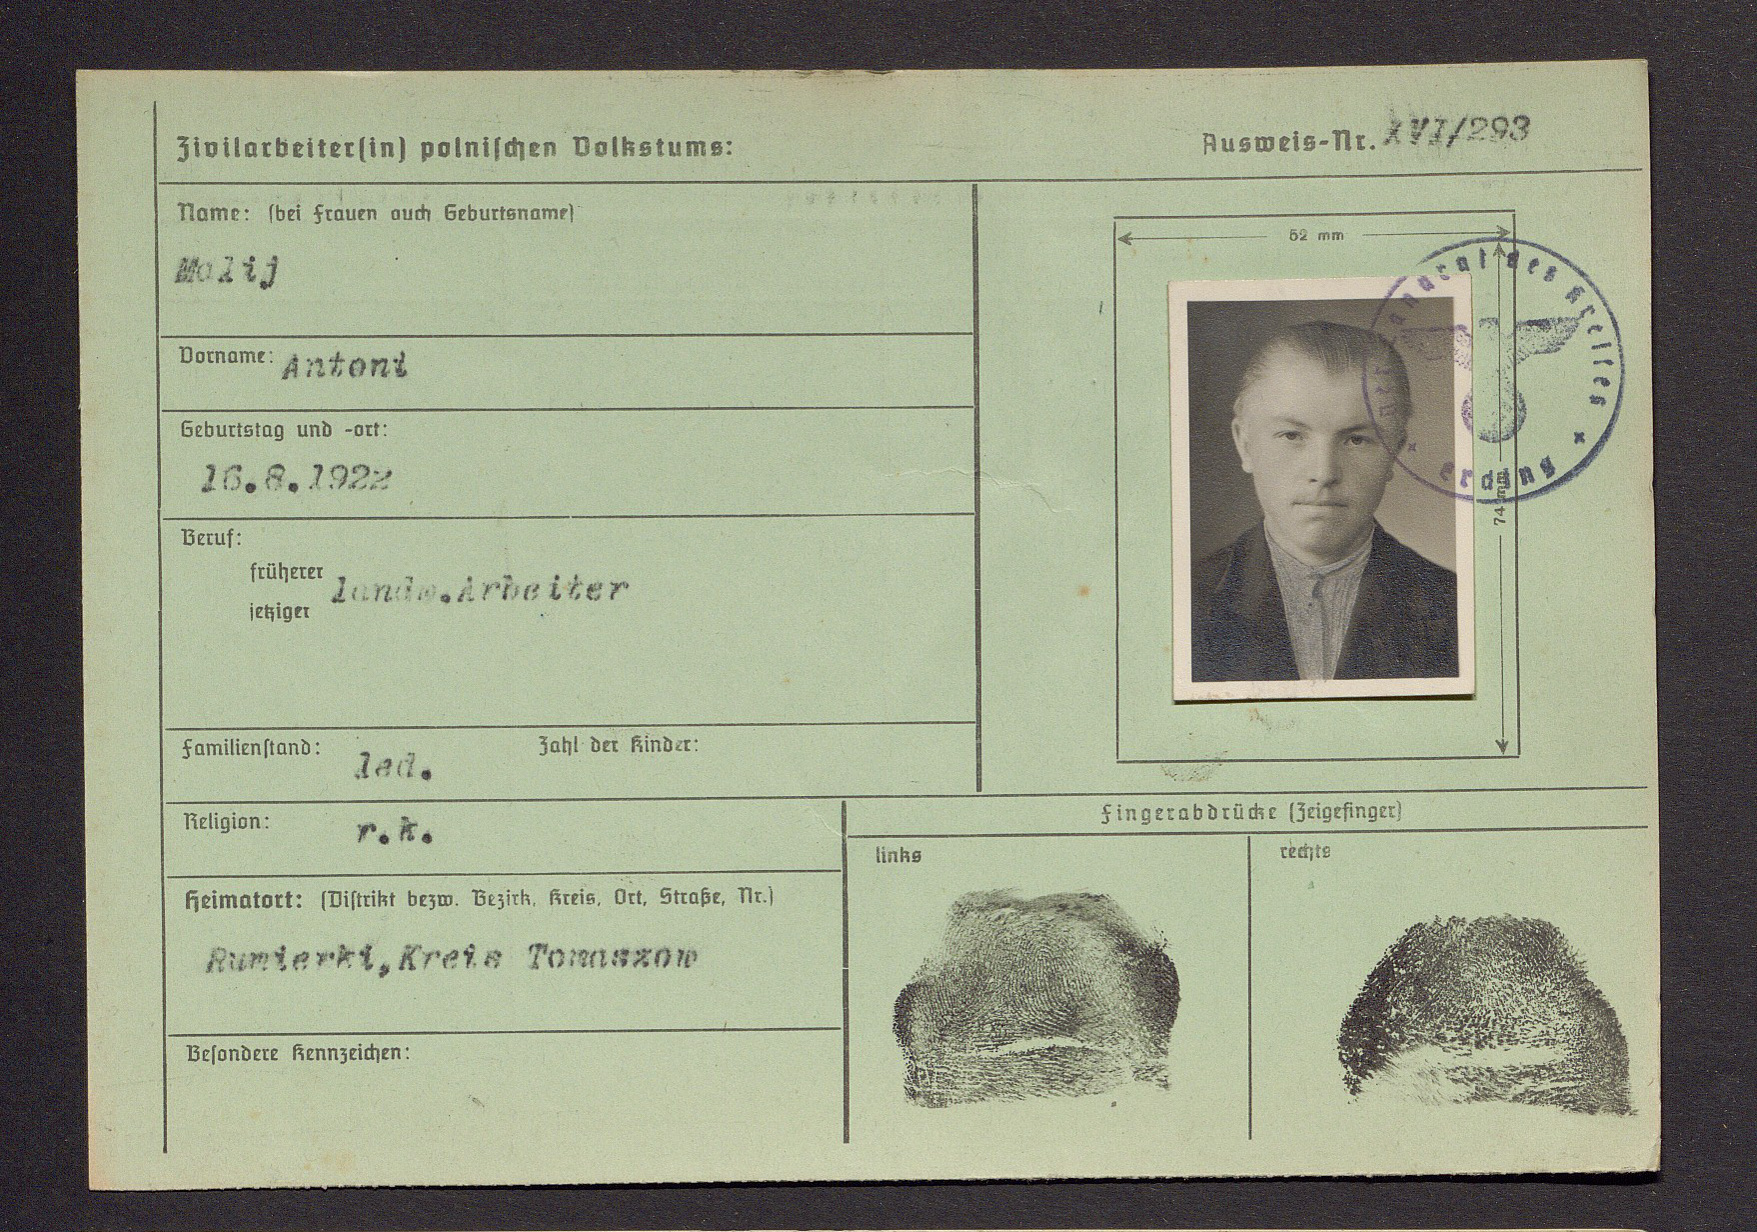 Zivilarbeiter(in) polnischen Volkstums:
Ausweis-Nr. XVI/293
Name: (bei Frauen auch Geburtsname)
Malij
Vorname: Antoni
Geburtstag und -ort:
16.8.1922
Beruf:
früherer
landw.Arbeiter
jetziger
Familienstand: led. Zahl der Kinder:
Religion: r.k.
Heimatort: (Distrikt bezw. Bezirk, Kreis, Ort, Straße, Nr.)
Rumierki,Kreis Tomaszow
Besondere Kennzeichen:
52 mm
74 mm
Landrat des Kreises
Erding
Fingerabdrücke (Zeigefinger)
links
rechts